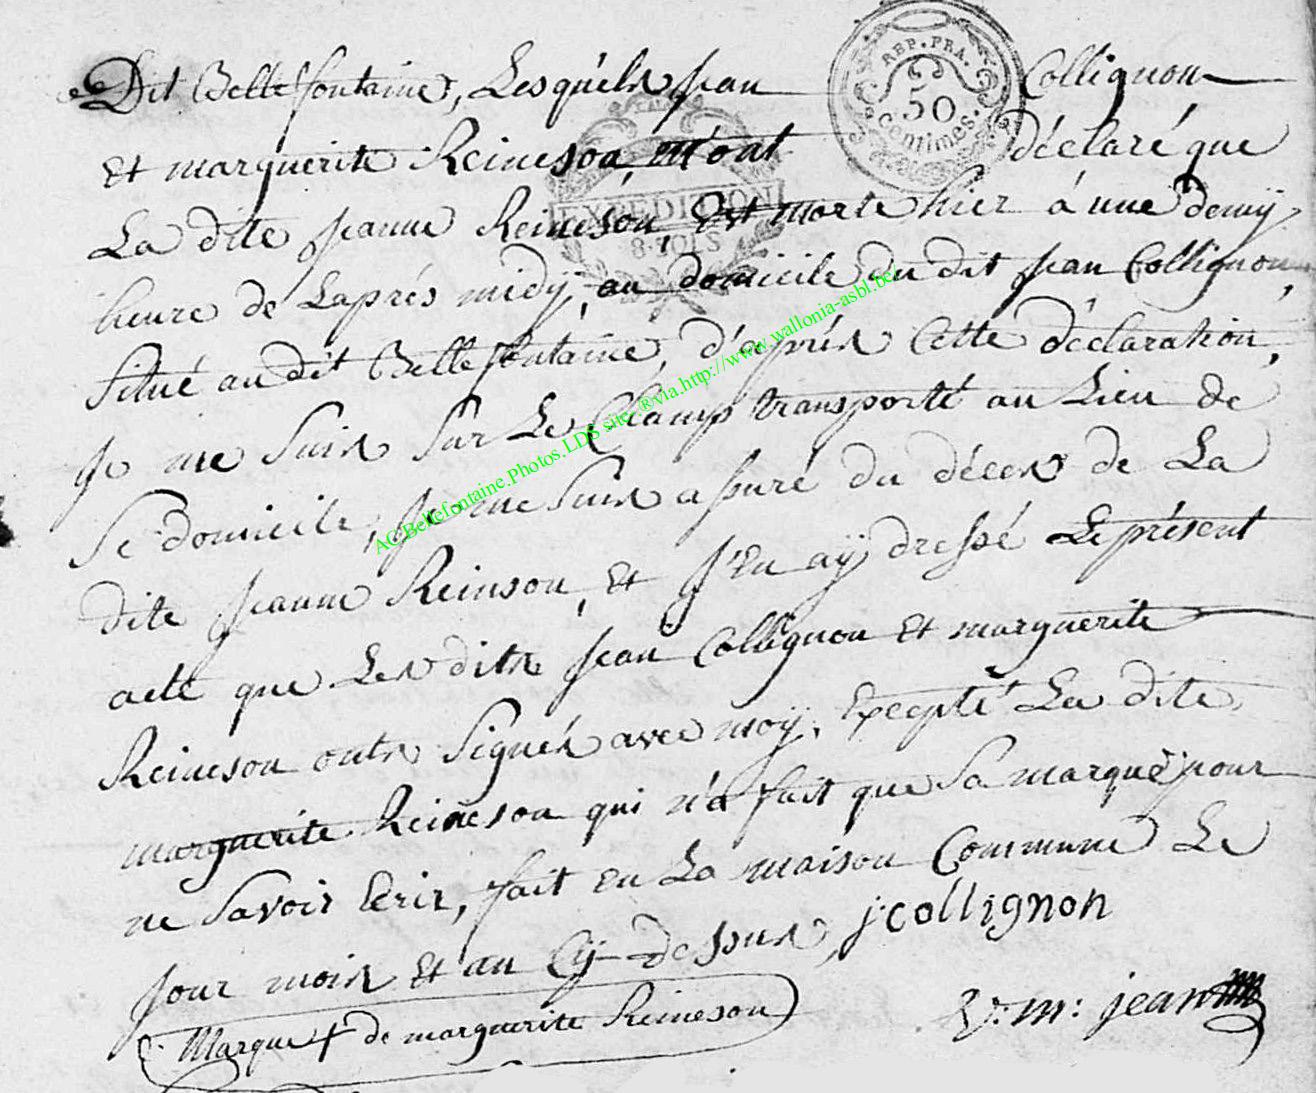 Dit Bellefontaine, Lesquels jean Collignon
REP. FRA.
50
centimes.
Et marguerite Reineson, m'ont déclaré que
EXPEDITION
8 SOLS
La dite jeanne Reineson, Est morte hier à une demÿ
heure de Laprés midÿ, au domicile du dit jean Collignon,
situé au dit Bellefontaine, d'aprés Cette déclaration,
je me suis sur Le Champ transporté au Lieu de
se domicile, je me suis assuré du déces de La
dite jeanne Reinson, Et j'En aÿ dressé Le présent
acte que Les dits jean Collignon Et marguerite
Reineson onts signés avec moÿ, Excepté La dite
marguerite Reineson qui n'a fait que sa marque pour
ne savoir Ecrir, fait En La maison Commune Le
jour mois Et an Cÿ-dessus, j:collignon
Marque + de marguerite Reineson
V: m: jean
AC.Bellefontaine.Photos.LDS site.®via.http://www.wallonia-asbl.be